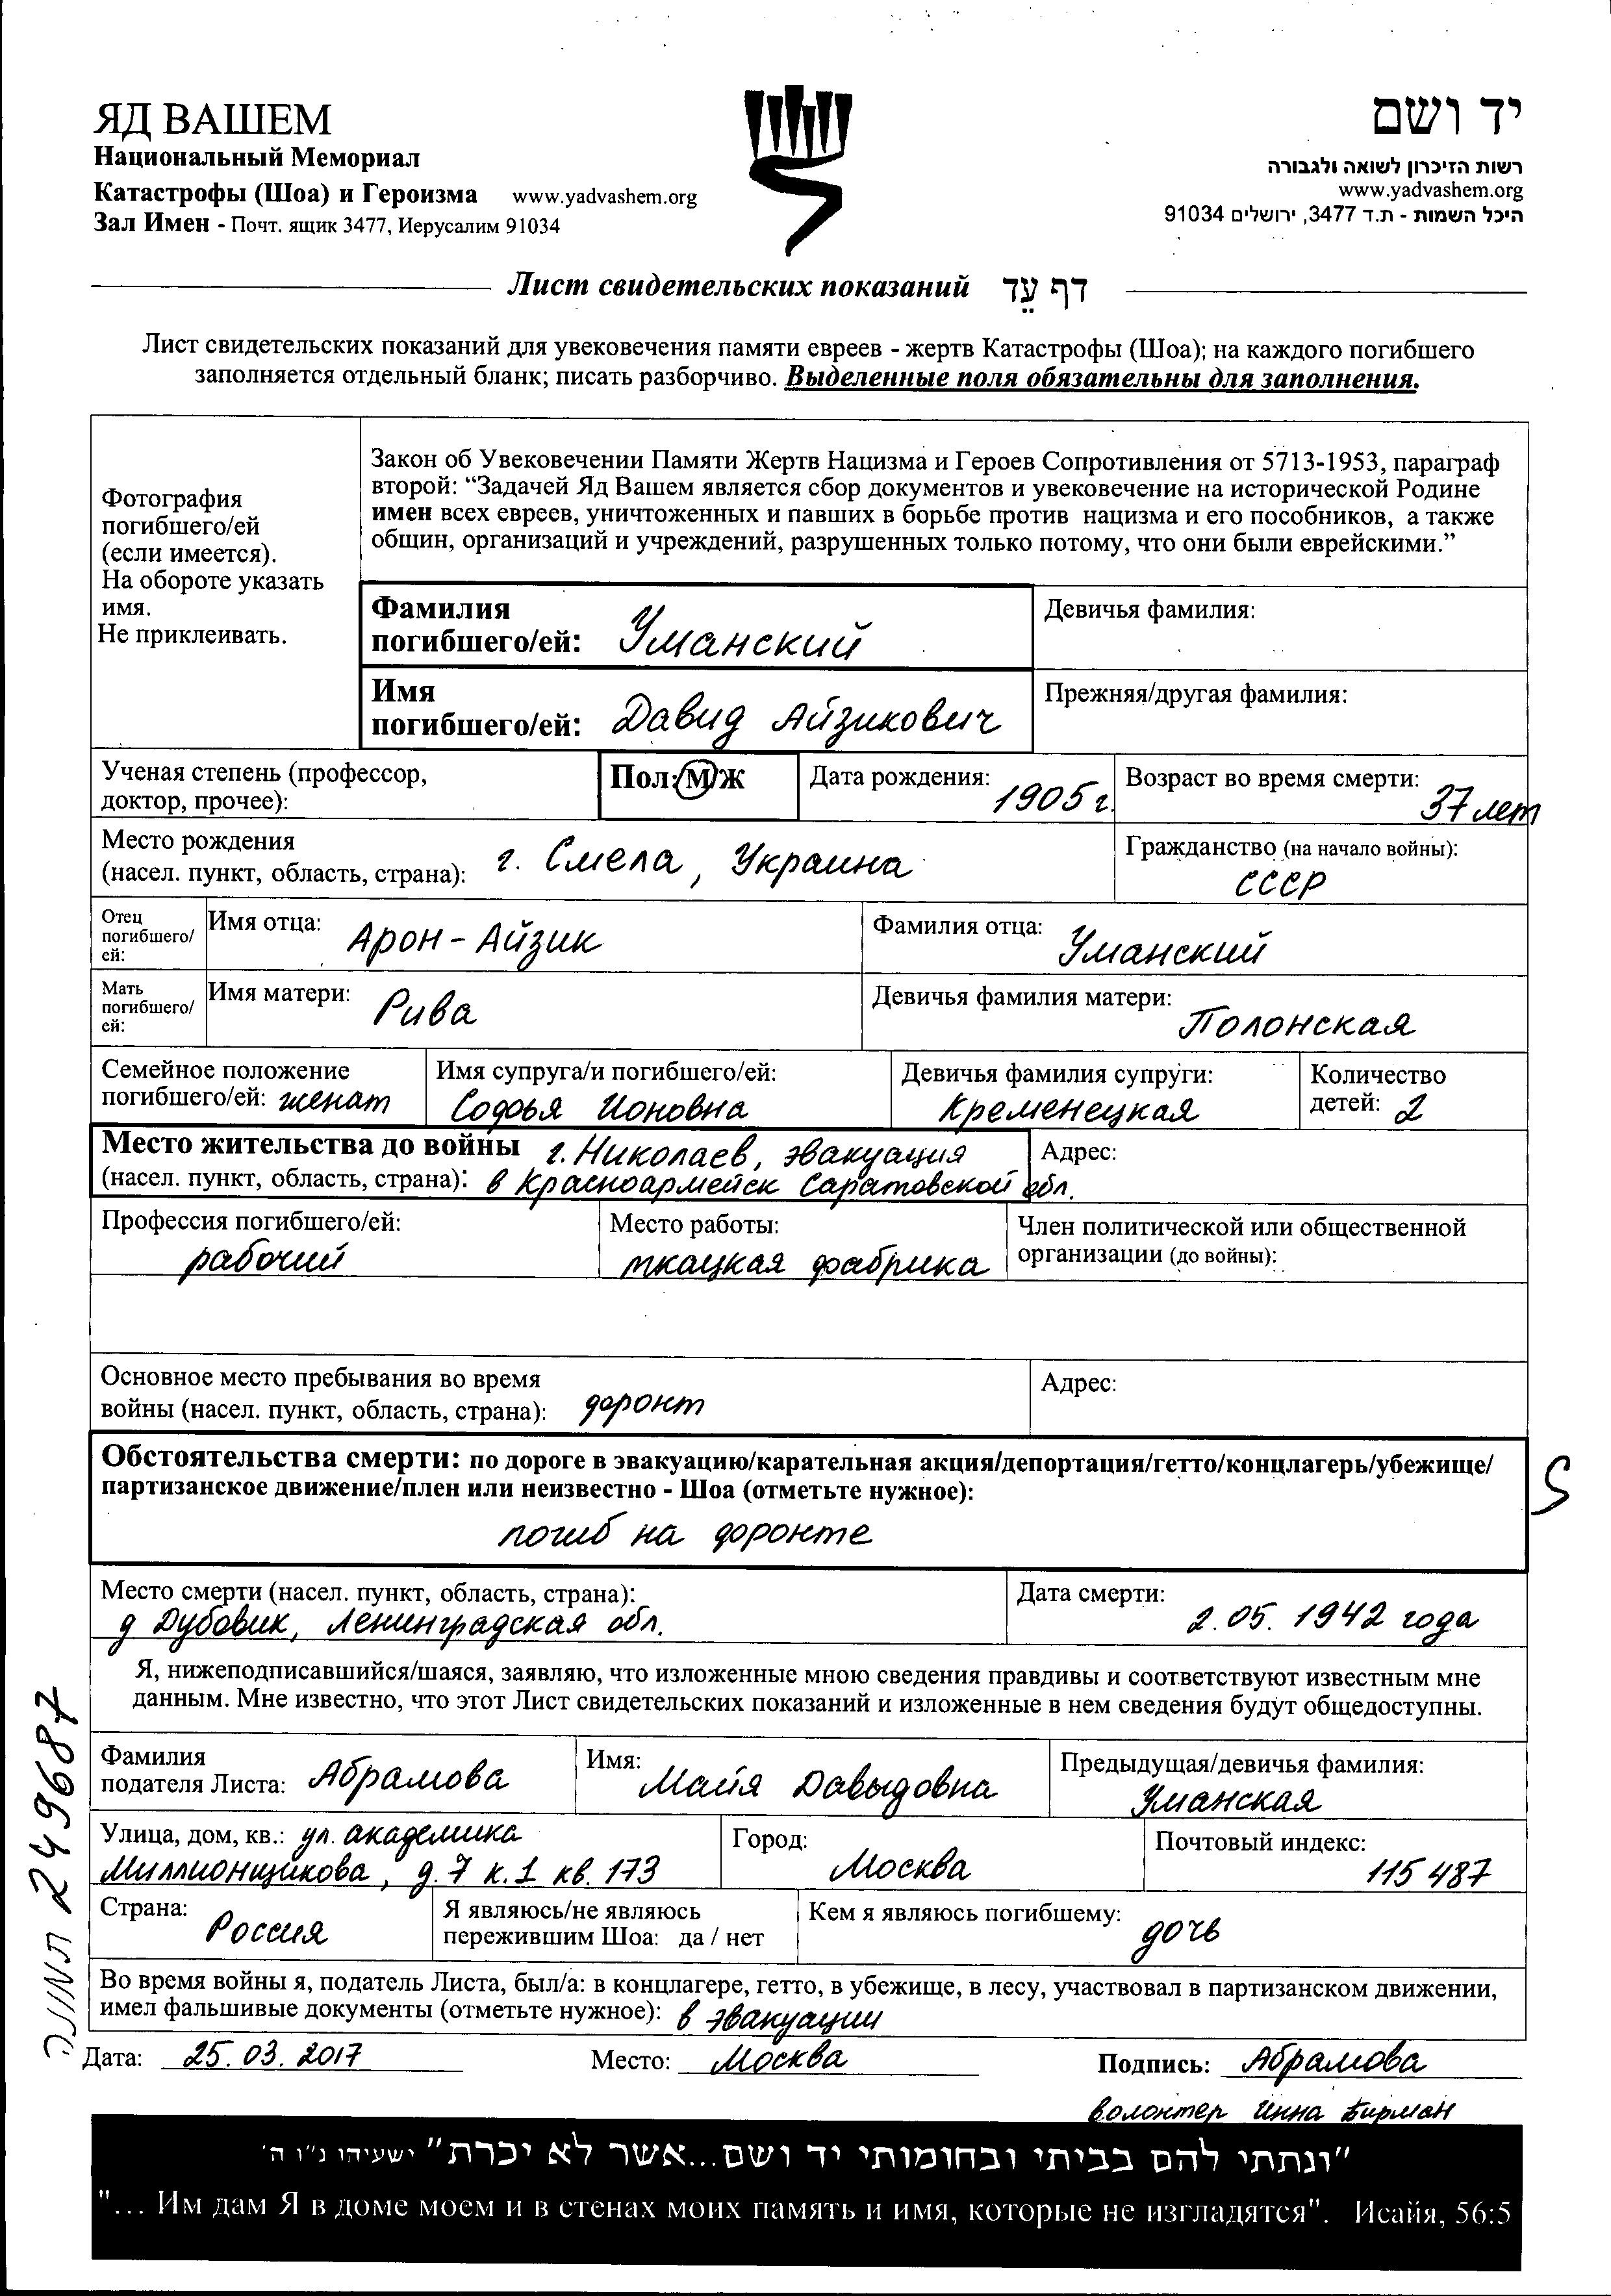 ЯД ВАШЕМ
Национальный Мемориал
Катастрофы (Шоа) и Героизма www.yadvashem.org
Зал Имен - Почт. ящик 3477, Иерусалим 91034
יד ושם
רשות הזיכרון לשואה ולגבורה
www.yadvashem.org
היכל השמות - ת.ד 3477, ירושלים 91034
Лист свидетельских показаний דף עֵד
Лист свидетельских показаний для увековечения памяти евреев - жертв Катастрофы (Шоа); на каждого погибшего
заполняется отдельный бланк; писать разборчиво. Выделенные поля обязательны для заполнения.
Фотография
погибшего/ей
(если имеется).
На обороте указать
имя.
Не приклеивать.
Закон об Увековечении Памяти Жертв Нацизма и Героев Сопротивления от 5713-1953, параграф
второй: “Задачей Яд Вашем является сбор документов и увековечение на исторической Родине
имен всех евреев, уничтоженных и павших в борьбе против нацизма и его пособников, а также
общин, организаций и учреждений, разрушенных только потому, что они были еврейскими.”
Фамилия
погибшего/ей: Уманский
Девичья фамилия:
Имя
погибшего/ей: Давид Айзикович
Прежняя/другая фамилия:
Ученая степень (профессор,
доктор, прочее):
Пол: М/Ж
Дата рождения: 1905 г.
Возраст во время смерти: 37 лет
Место рождения
(насел. пункт, область, страна): г. Смела, Украина
Гражданство (на начало войны):
СССР
Отец
погибшего/
ей:
Имя отца: Арон-Айзик
Фамилия отца: Уманский
Мать
погибшего/
ей:
Имя матери: Рива
Девичья фамилия матери:
Полонская
Семейное положение
погибшего/ей: женат
Имя супруга/и погибшего/ей:
Софья Ионовна
Девичья фамилия супруги:
Кременецкая
Количество
детей: 2
Место жительства до войны г. Николаев, эвакуация
(насел. пункт, область, страна): в Красноармейск Саратовской обл.
Адрес:
Профессия погибшего/ей:
рабочий
Место работы:
ткацкая фабрика
Член политической или общественной
организации (до войны):
Основное место пребывания во время
войны (насел. пункт, область, страна): фронт
Адрес:
Обстоятельства смерти: по дороге в эвакуацию/карательная акция/депортация/гетто/концлагерь/убежище/
партизанское движение/плен или неизвестно - Шоа (отметьте нужное):
погиб на фронте
S
Место смерти (насел. пункт, область, страна):
д Дубовик, Ленинградская обл.
Дата смерти:
2.05. 1942 года
Я, нижеподписавшийся/шаяся, заявляю, что изложенные мною сведения правдивы и соответствуют известным мне
данным. Мне известно, что этот Лист свидетельских показаний и изложенные в нем сведения будут общедоступны.
Фамилия
подателя Листа: Абрамова
Имя:
Майя Давыдовна
Предыдущая/девичья фамилия:
Уманская
Улица, дом, кв.: ул. академика
Миллионщикова, д. 7 к. 1 кв. 173
Город:
Москва
Почтовый индекс:
115 487
Страна:
Россия
Я являюсь/не являюсь
пережившим Шоа: да / нет
Кем я являюсь погибшему:
дочь
Во время войны я, податель Листа, был/а: в концлагере, гетто, в убежище, в лесу, участвовал в партизанском движении,
имел фальшивые документы (отметьте нужное): в эвакуации
Дата: 25.03.2017
Место: Москва
Подпись: Абрамова
волонтер Инна Бирман
תמונה 249687
"ונתתי להם בביתי ובחומותי יד ושם...אשר לא יכרת" ישעיהו נ"ו ה'
"... Им дам Я в доме моем и в стенах моих память и имя, которые не изгладятся". Исайя, 56:5